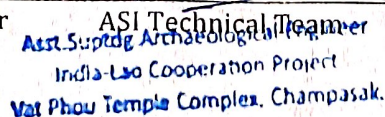 r ASI Technical Team
Asst. Suptdg Archaeological Engineer
India-Lao Cooperation Project
Vat Phou Temple Complex, Champasak.